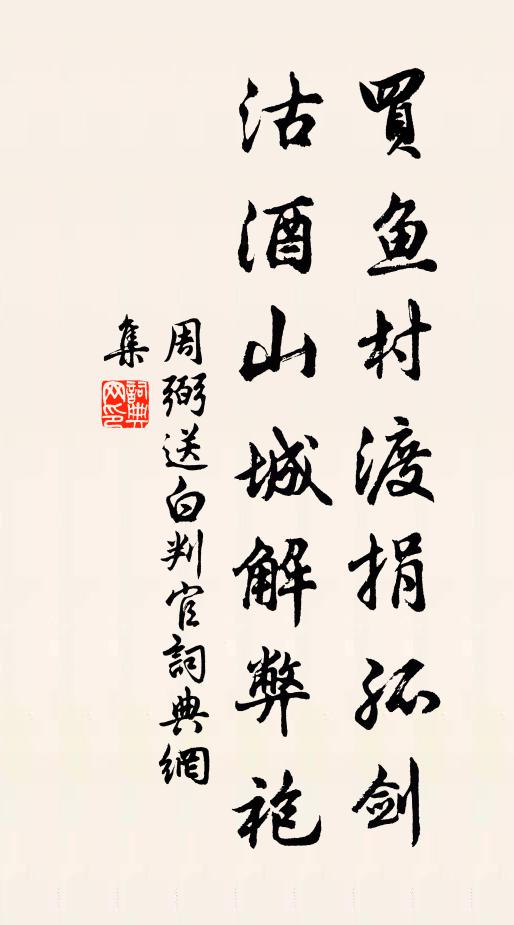 買鱼村渡捐孤劍
沽酒山城解弊袍
周弼送白判官詞典網
集
詞典
网印